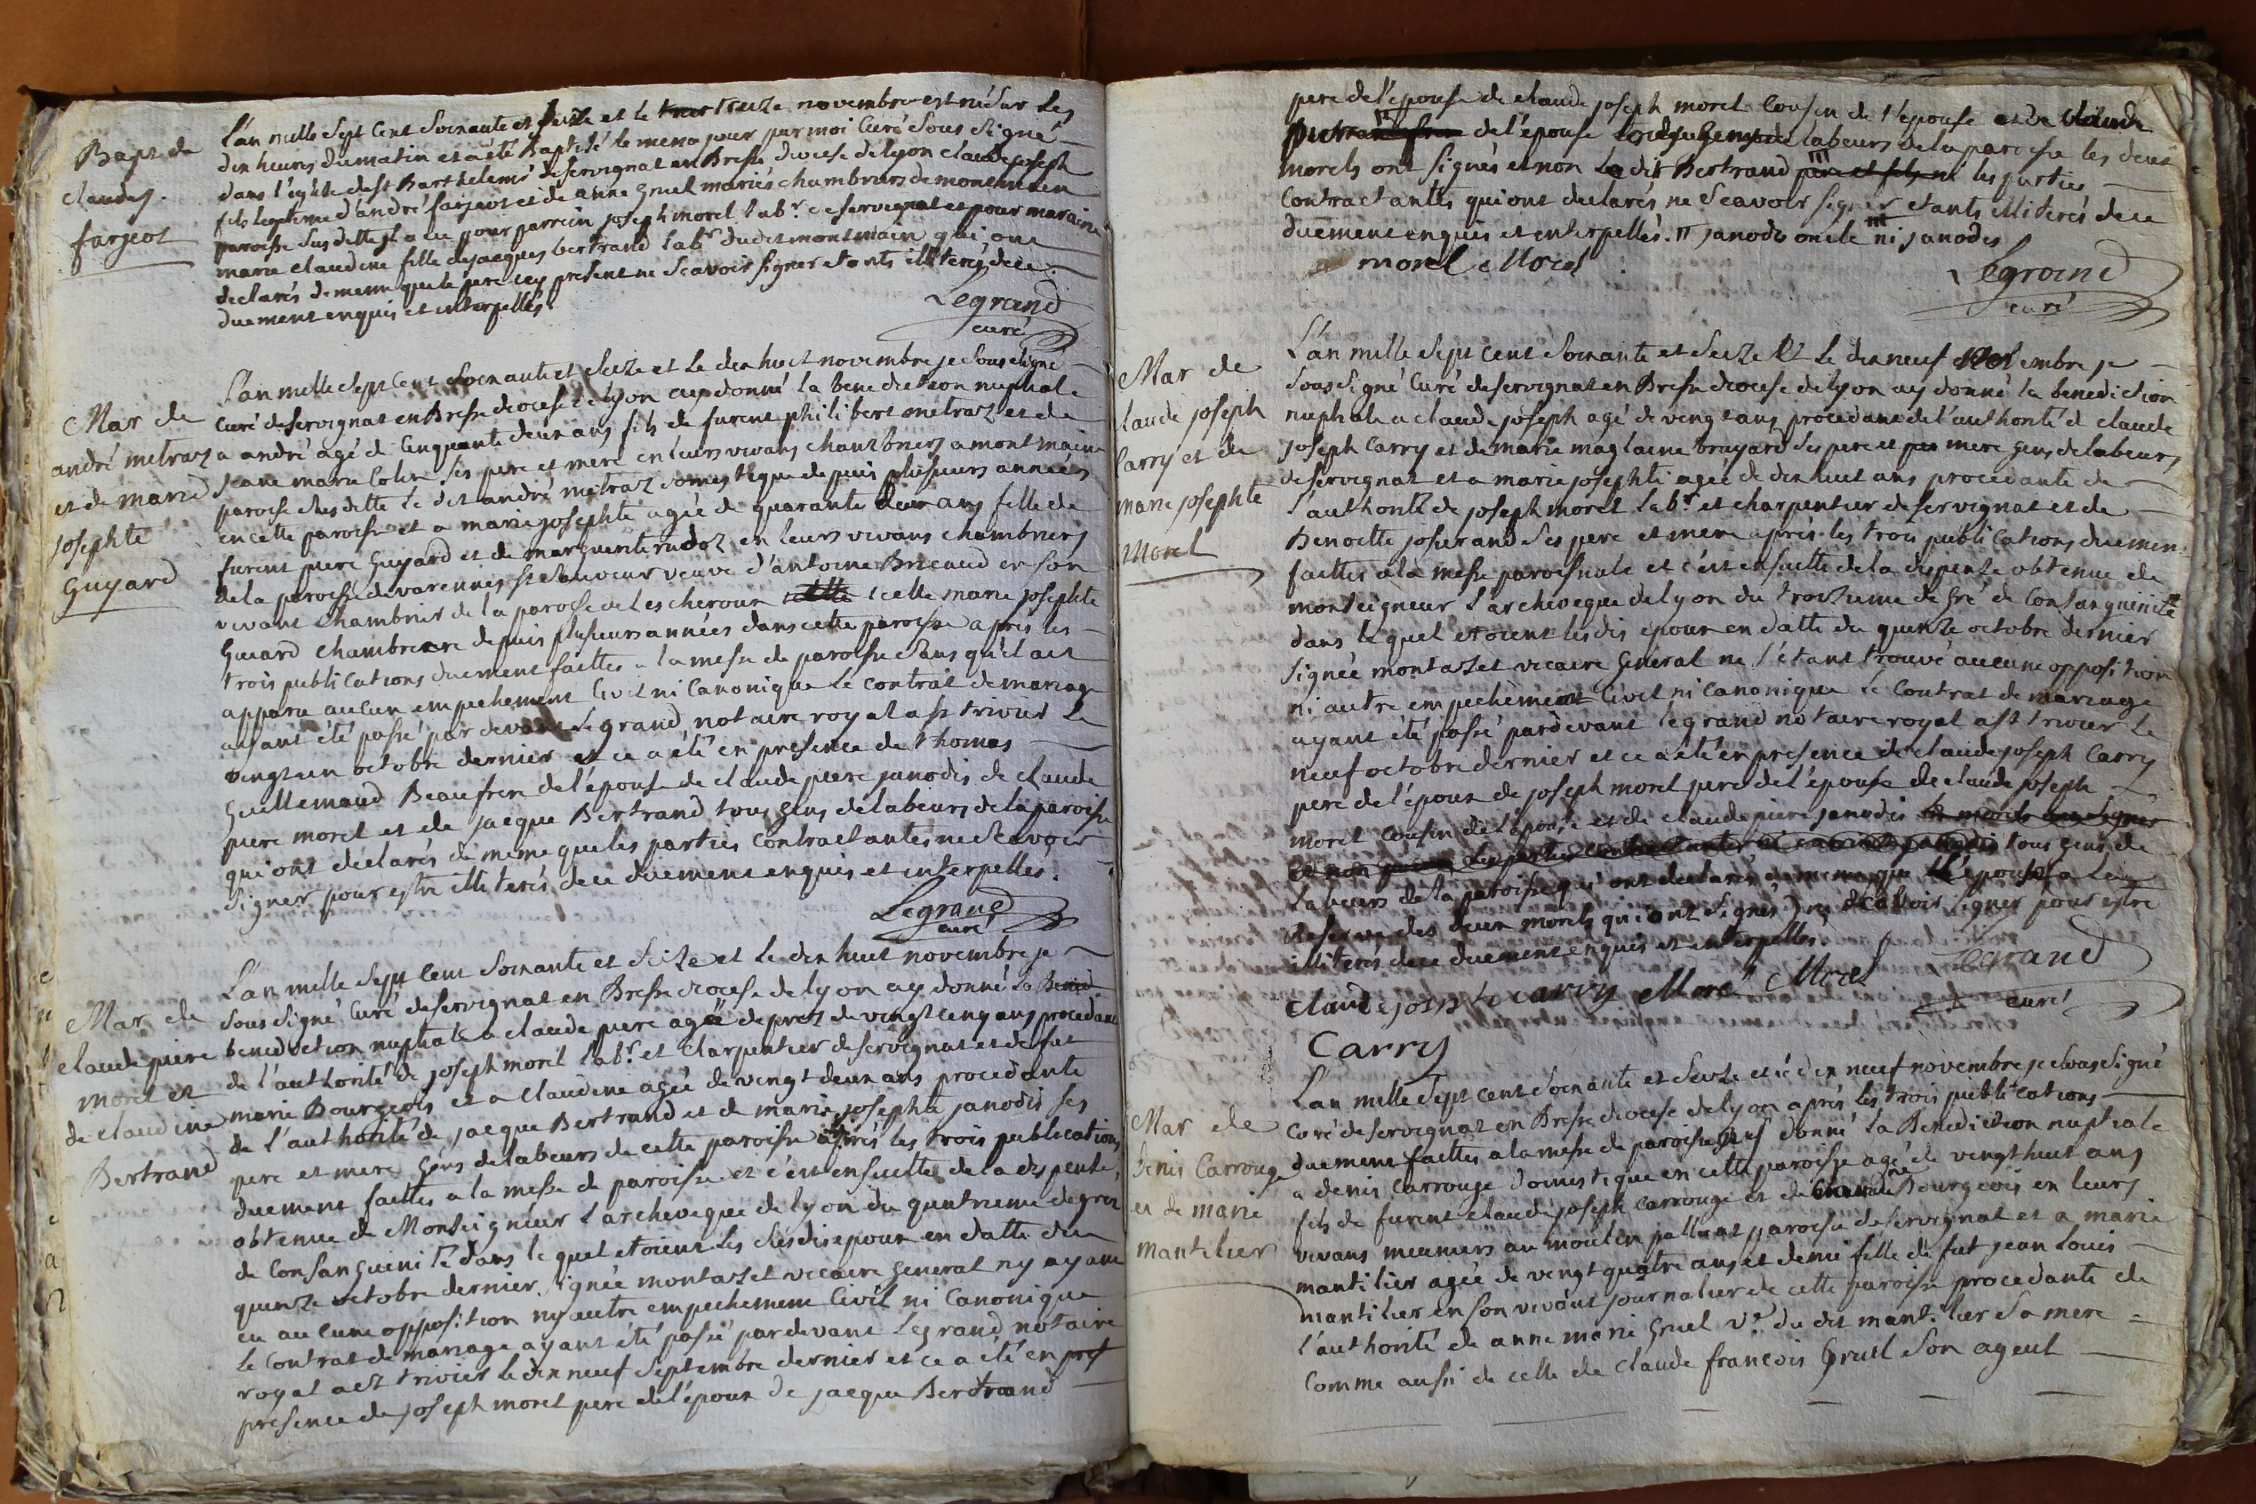 Bapt de
claude j.
farjeot
L'an mille sept cent soixante et seize et le treize novembre est né sur les
dix heures du matin et a été Baptisé le meme jour par moi Curé sous signé
dans l'église de st Barthelemi de servignat en Bresse diocese de lyon claude joseph
fils legitime d'andré farjeot et de anne gruel mariés chambriers de montmain
paroisse sus ditte il a eu pour parrein joseph morel lab.r de servignat et pour maraine
marie claudine fille de jacques bertrand lab.r du dit montmain qui ont
declarés de meme que le pere icy present ne scavoir signer etants illiterés de ce
duement enquis et interpellés.
Legrand
curé
Mar de
andré metraz
et de marie
josephte
Guyard
L'an mille sept cent soixante et seize et le dix huit novembre je sous signé
curé de servignat en Bresse diocese de lyon ay donné la benediction nuptiale
a andré agé de cinquante deux ans fils de furent philibert metraz et de
jeane marie Colin ses pere et mere en leurs vivans chambriers a montmain
paroisse susditte le dit andré metraz domestique depuis plusieurs années
en cette paroisse et a marie josephte agée de quarante deux ans fille de
furent piere Guyard et de marguerite rudoz en leurs vivans chambriers
de la paroisse de varennes st sauveur veuve d'antoine Bricaud en son
vivant chambrier de la paroisse de lescheroux icelle marie josephte
Guiard chambriere depuis plusieurs années dans cette paroisse apres les
trois publications duement faittes a la messe de paroisse sans qu'il ait
apparu aucun empechement Civil ni Canonique le contrat de mariage
ayant été passé par devant Legrand notaire royal a st trivier le
vingt un octobre dernier et ce a été en presence de thomas
Guillemaud Beaufrere de l'épouse de claude piere janodis de claude
piere morel et de jacque Bertrand tous gens de labeurs de la paroisse
qui ont declarés de meme que les parties contractantes ne scavoir
signer pour estre illiterés de ce duement enquis et interpellés.
Legrand
curé
Mar de
claude piere
morel et
de claudine
Bertrand
L'an mille sept cent soixante et seize et le dix huit novembre je
sous signé Curé de servignat en Bresse diocese de lyon ay donné la Bened
benediction nuptiale a claude piere agé de pres de vingt cinq ans procedant
de l'authorité de joseph morel lab.r et charpentier de servignat et de fut
marie Bourgeois et a claudine agée de vingt deux ans procedante
de l'authorité de jacque Bertrand et de marie josephte janodis ses
pere et mere gens de labeurs de cette paroisse après les trois publications
duement faittes a la messe de paroisse et c'est ensuitte de la dispense
obtenue de Monseigneur l'archeveque de lyon du quatrieme degrez
de Consanguinité dans le quel etoient les susdis epoux en datte du
quinze octobre dernier signée montazet vicaire general ny ayant
eu aucune opposition ny autre empechement Civil ni Canonique
le Contrat de mariage ayant été passé par devant Legrand notaire
royal a st trivier le dix neuf septembre dernier et ce a été en pres
presence de joseph morel pere de l'époux de jacque Bertrand
pere de l'épouse de claude joseph morel Cousin de l'épouse et de claude
de l'épouse labeurs de la paroisse les deux
morels ont signés et non le dit Bertrand pere et fils ni les parties
Contractantes qui ont declarés ne scavoir signer etants illiterés de ce
duement enquis et interpellés. janodis ni janodis
morel Morel
Legrand
curé
Mar de
claude joseph
Carry et de
marie josephte
Morel
L'an mille sept cent soixante et seize et le dix neuf novembre je
sous signé Curé de servignat en Bresse diocese de lyon ay donné la benediction
nuptiale a claude joseph agé de vingt ans procedant de l'authorité de claude
joseph Carry et de marie maglaine bruyard ses pere et mere gens de labeurs
de servignat et a marie josephte agée de dix huit ans procedante de
l'authorité de joseph morel lab.r et charpentier de servignat et de
Benoitte josserand ses pere et mere après les trois publications duement
faittes a la messe paroissiale et c'est ensuitte de la dispense obtenue de
monseigneur l'archeveque de lyon du troizieme degré de Consanguinité
dans le quel etoient les dis epoux en datte du quinze octobre dernier
signée montazet vicaire general ne s'étant trouvé aucune opposition
ni autre empechement Civil ni Canonique le Contrat de mariage
ayant été passé par devant legrand notaire royal a st trivier le
neuf octobre dernier et ce a été en presence de claude joseph Carry
pere de l'époux de joseph morel pere de l'épouse de claude joseph
morel Cousin de l'épouse et de claude piere janodis
et non les parties contractantes tous gens de
labeurs de la paroisse qui ont declarés de meme que l'épouse (a la
reserve des deux morels qui ont signés) ne scavoir signer pour estre
illiterés de ce duement enquis et interpellés.
claude joseph carry Morel Morel
Legrand
curé
Carry
Mar de
denis Carrouge
et de marie
mantilier
L'an mille sept cent soixante et seize et le dix neuf novembre je sous signé
Curé de servignat en Bresse diocese de lyon après les trois publications
duement faittes a la messe de paroisse ay donné la Benediction nuptiale
a denis Carrouge domestique en cette paroisse agé de vingt huit ans
fils de furent claude joseph Carrouge et de Bourgeois en leurs
vivans meuniers au moulin paroisse de servignat et a marie
mantilier agée de vingt quatre ans et demi fille de fut jean louis
mantilier en son vivant journalier de cette paroisse procedante de
l'authorité de anne marie gruel v.e du dit mantilier sa mere
Comme aussi de celle de claude francois Gruel son ayeul